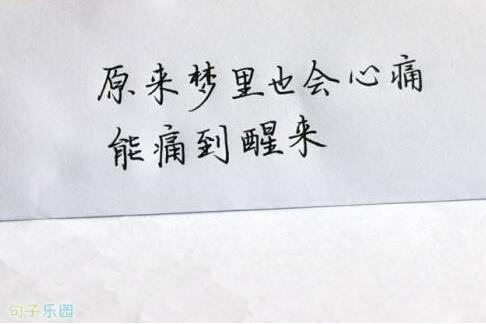 原来梦里也会心痛
能痛到醒来
句子乐园